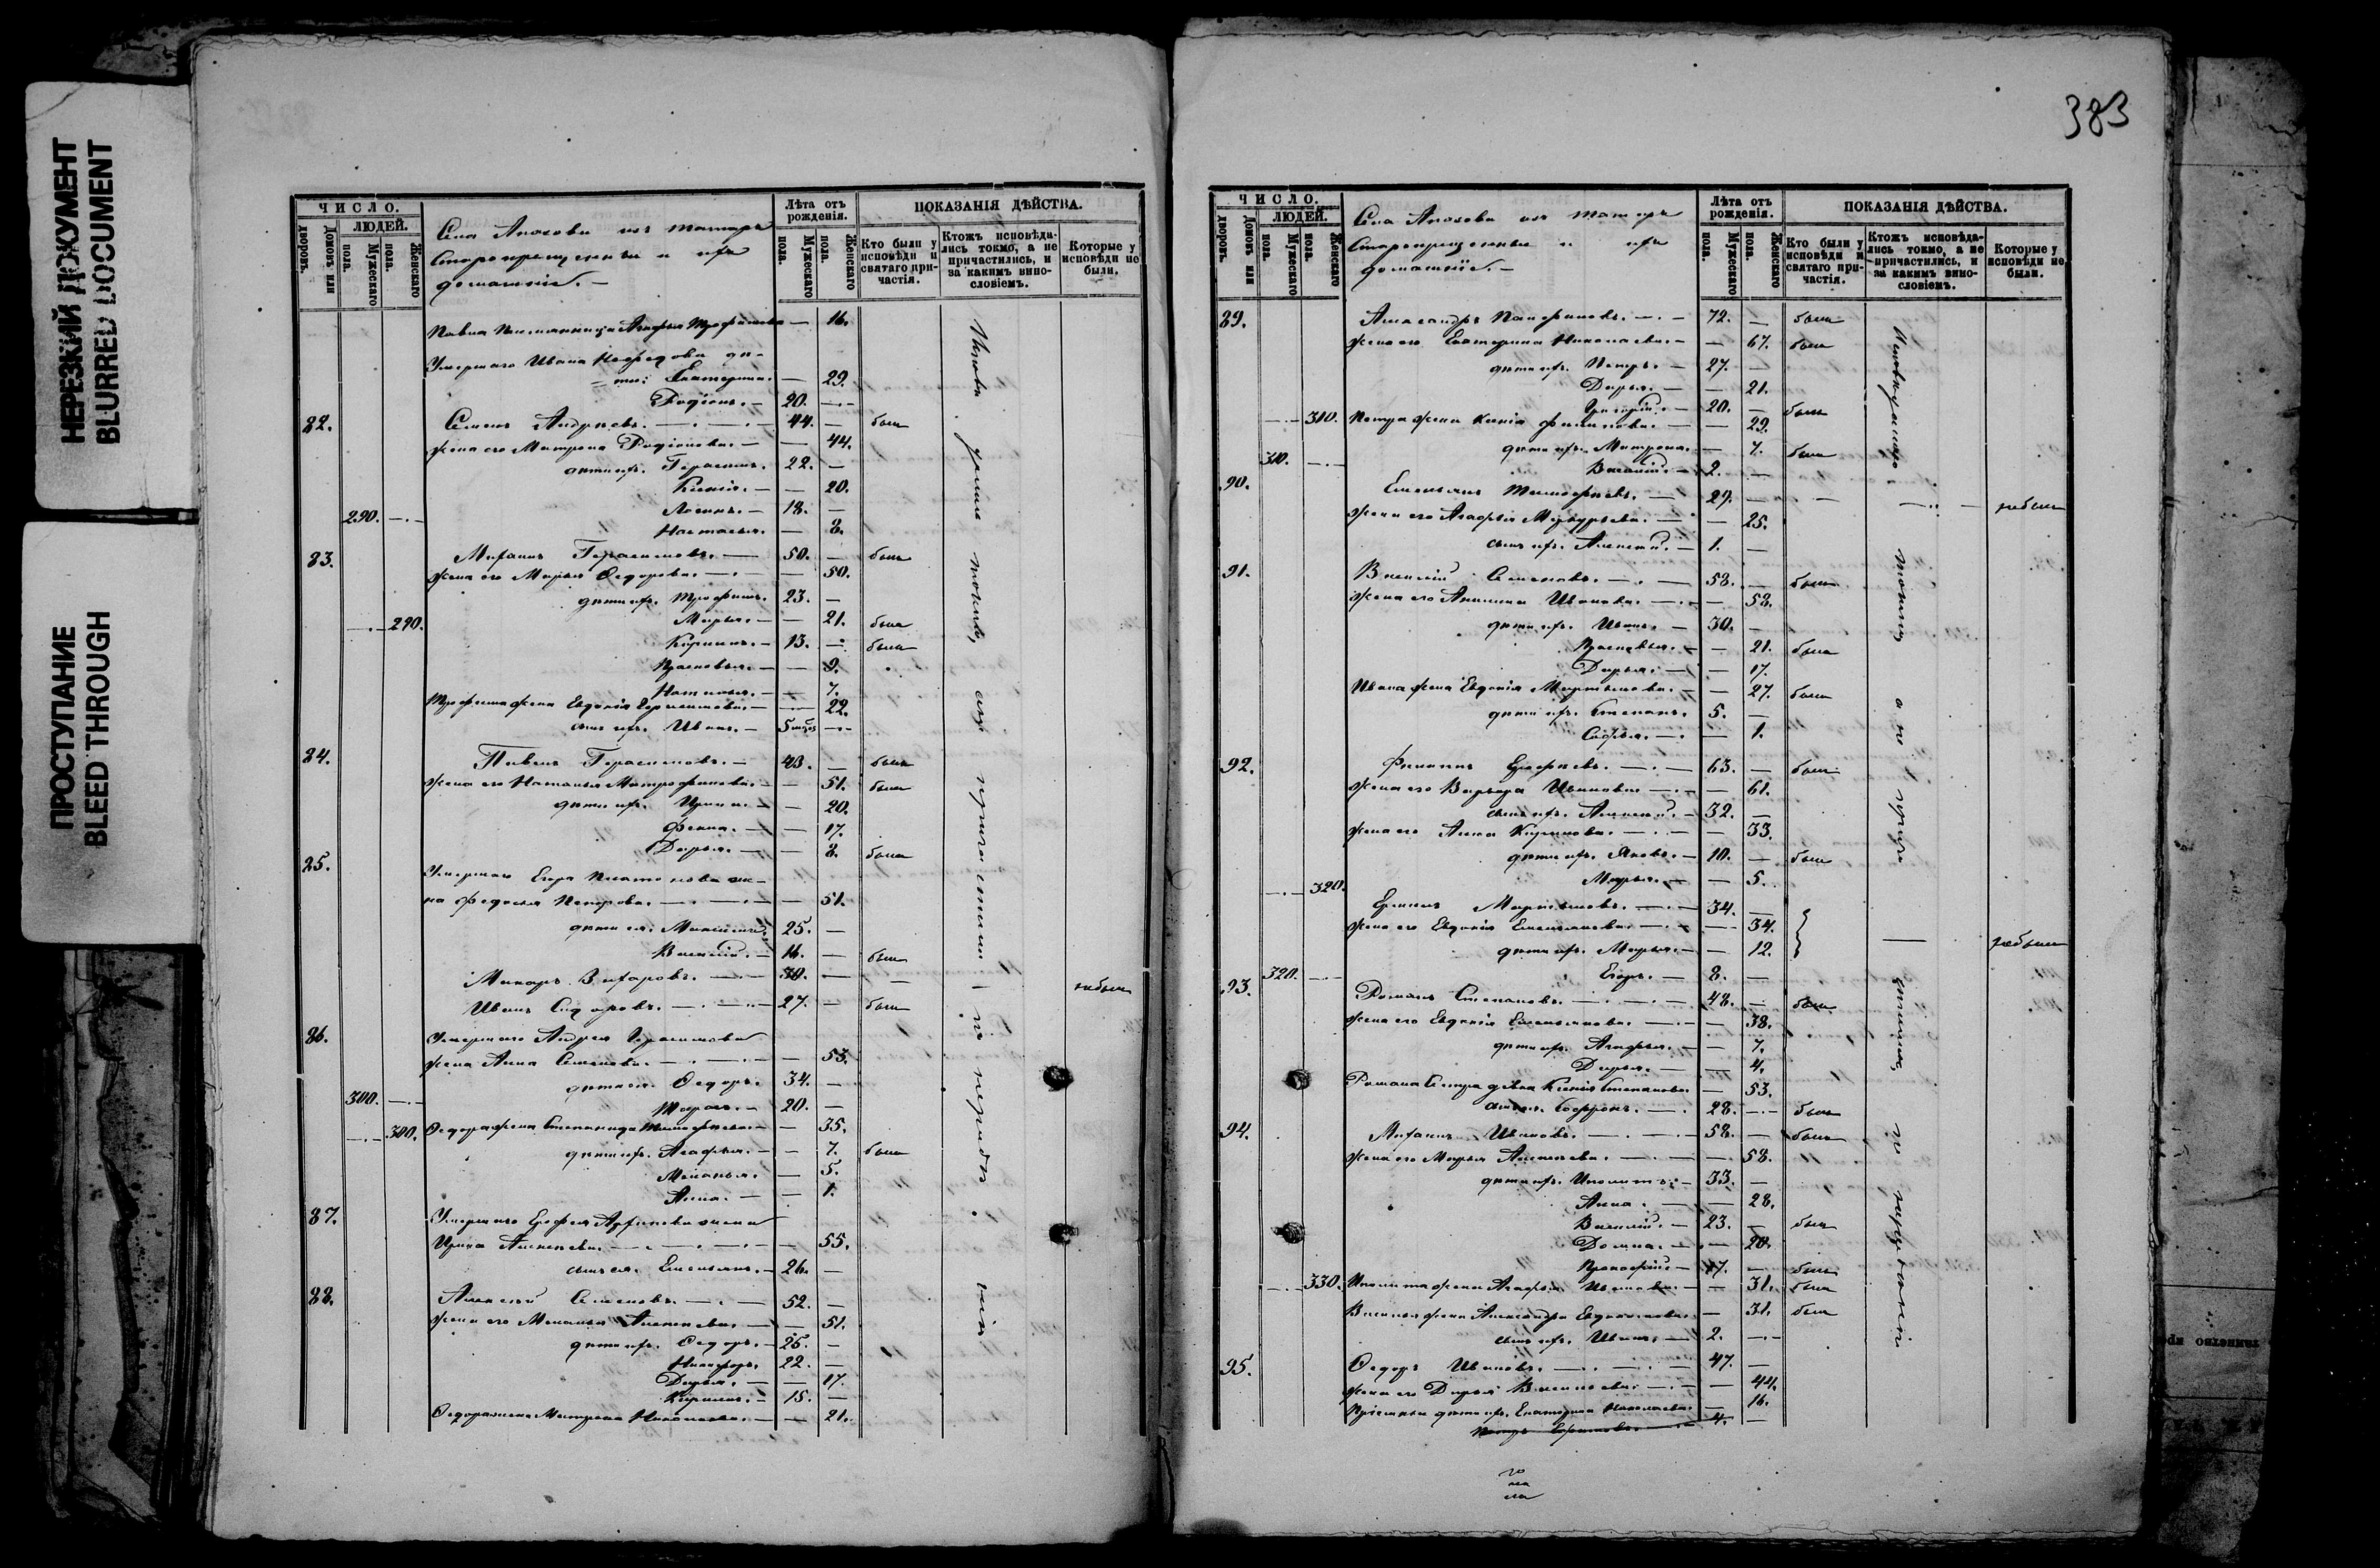 НЕРЕЗКИЙ ДОКУМЕНТ
BLURRED DOCUMENT
ПРОСТУПАНИЕ
BLEED THROUGH
ЧИСЛО.
ЛЮДЕЙ.
Домовъ или дворовъ.
Мужескаго пола.
Женскаго пола.
Села Апазова изъ татаръ
Старокрещенные и ихъ
домашніе.
Лѣта отъ рожденія.
Мужескаго пола.
Женскаго пола.
ПОКАЗАНІЯ ДѢЙСТВА.
Кто были у исповѣди и святаго причастія.
Ктожъ исповѣдались токмо, а не причастились, и за какимъ винословіемъ.
Которые у исповѣди не были.
Павла племянница Агафья Трофимова — 16.
Умершаго Ивана Нефедова дѣ-
ти: Екатерина. — 29.
Родіонъ. — 20. —
82. Семенъ Андреевъ. — 44. — былъ
Жена его Матрона Родіонова. — 44.
дѣти ихъ. Герасимъ. 22. —
Ксенія. — 20.
290. Логинъ. — 18. —
Настасья. — 8.
83. Михаилъ Герасимовъ. — 50. — былъ
Жена его Марья Ѳедорова. — 50.
дѣти ихъ. Трофимъ. 23. —
290. Марья. — 21. была
Кирилъ. — 13. — былъ
Прасковья. — 9.
Наталья. — 7.
Трофима жена Евдокія Герасимова. — 22.
сынъ ихъ. Иванъ. — 5 —
84. Павелъ Герасимовъ. — 43. — былъ
Жена его Наталья Митрофанова. — 51. была
дѣти ихъ. Ирина. — 20.
Фекла. — 17.
Дарья. — 8. была
85. Умершаго Егора Платонова же-
на Федосья Петрова. — 51.
дѣти ея. Максимъ. 25. —
Василій. — 16. — былъ
Макаръ Захаровъ. — 30. — — небылъ
Иванъ Сидоровъ. — 27. — былъ
86. Умершаго Андрея Герасимова
жена Анна Семенова. — 53.
дѣти ея. Ѳедоръ. 34. —
300. Тарасъ. — 20. —
300. Ѳедора жена Степанида Тимофеева. — 35.
дѣти ихъ. Агафья. — 7. была
Меланья. — 5.
Анна. — 1.
87. Умершаго Ерофея жена
Ирина Алексеева. — 55.
сынъ ея. Емельянъ. — 26. —
88. Алексей Семеновъ. — 52. —
Жена его Меланья Алексеева. — 51.
дѣти ихъ. Ѳедоръ. — 25. —
Никифоръ. 22. —
Дарья. — 17.
Кирилъ. — 15. —
Ѳедора жена Матрона Николаева. — 21.
383
ЧИСЛО.
ЛЮДЕЙ.
Домовъ или дворовъ.
Мужескаго пола.
Женскаго пола.
Села Апазова изъ татаръ
Старокрещенные и ихъ
домашніе.
Лѣта отъ рожденія.
Мужескаго пола.
Женскаго пола.
ПОКАЗАНІЯ ДѢЙСТВА.
Кто были у исповѣди и святаго причастія.
Ктожъ исповѣдались токмо, а не причастились, и за какимъ винословіемъ.
Которые у исповѣди не были.
89. Александръ — 72. — былъ
Жена его Екатерина Николаева. — 67. была
дѣти ихъ. Петръ. — 27. —
Дарья. — 21.
Григорій. — 20. — былъ
310. Петра жена Ксенія Филипова. — 29.
дѣти ихъ. Матрона. — 7. была
310. Василій. — 2. —
90. Емельянъ Тимофеевъ. — 29. — — небылъ
Жена его Агафья Меркурьева. — 25.
сынъ ихъ. Алексей. — 1. —
91. Василій Семеновъ. — 58. — былъ
Жена его Акилина Иванова. — 58.
дѣти ихъ. Иванъ. — 30. —
Прасковья. — 21. была
Дарья. — 17.
Ивана жена Евдокія Мартынова. — 27. была
дѣти ихъ. Степанъ. 5. —
Софья. — 1.
92. Филипъ — 63. — былъ
Жена его Варвара Иванова — 61.
сынъ ихъ. Алексей. — 32. —
Жена его Анна Кирилова. — 33.
дѣти ихъ. Яковъ. — 10. — былъ
320. Марья. — 5.
Ермилъ Мартыновъ. — 34. —
Жена его Евдокія Емельянова. — 34.
дѣти ихъ. Марья. — 12. — небыли
320. Егоръ. — 8. —
93. Романъ Степановъ. — 48. — былъ
Жена его Евдокія Емельянова. — 38.
дѣти ихъ. Агафья. — 7.
Дарья. — 4.
Романа сестра дѣвка Ксенія Степанова — 53.
сынъ ея. Софронъ. — 28. — былъ
94. Михаилъ Ивановъ. — 58. — былъ
Жена его Марья Алексеева. — 58.
дѣти ихъ. Иполитъ. — 33. —
Анна. — 28.
Василій. — 23. — былъ
Домна. — 20.
Прокофій. — 17. — былъ
330. Иполита жена Агафья Иванова. — 31. была
Василья жена Александра Евдокимова. — 31. была
сынъ ихъ. Иванъ. — 2. —
95. Ѳедоръ Ивановъ. — 47. —
Жена его Дарья Васильева. — 44.
Пріемныя дѣти ихъ. Екатерина Николаева. — 16.
4. —